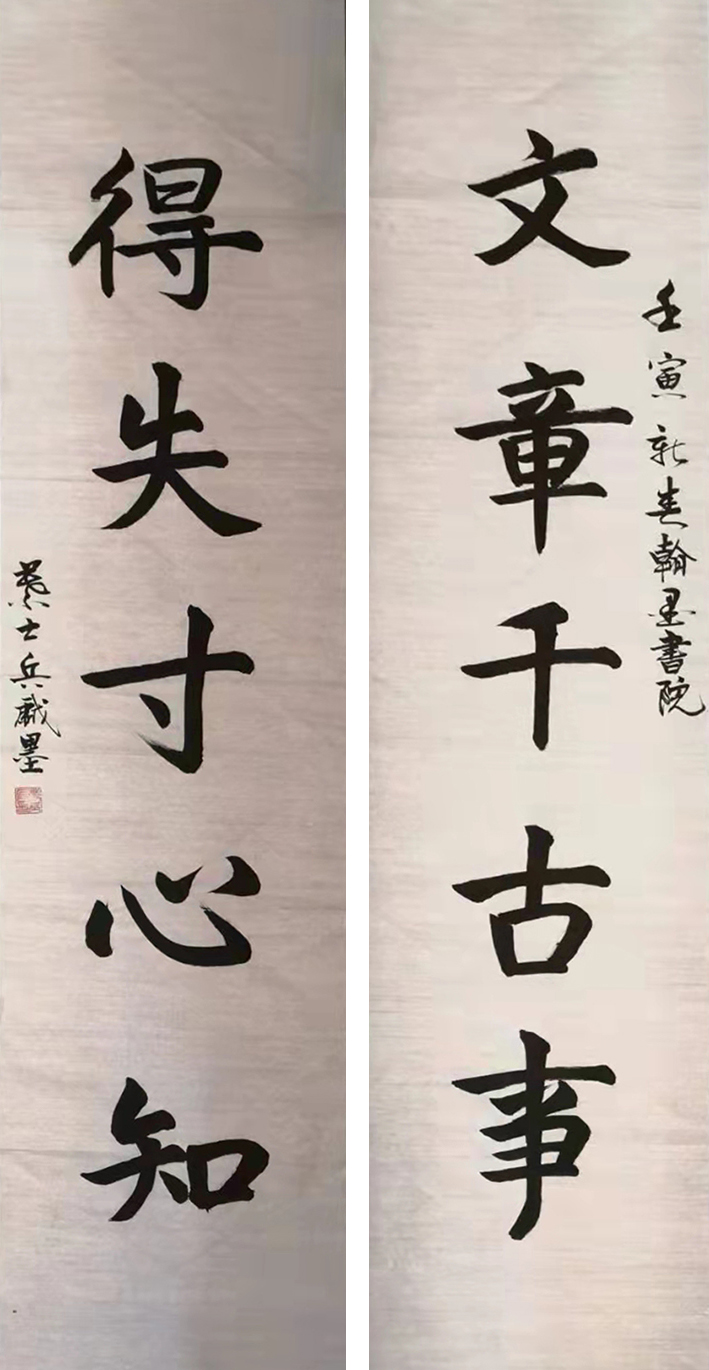 文章千古事
壬寅新春翰墨書院
得失寸心知
士兵戲墨